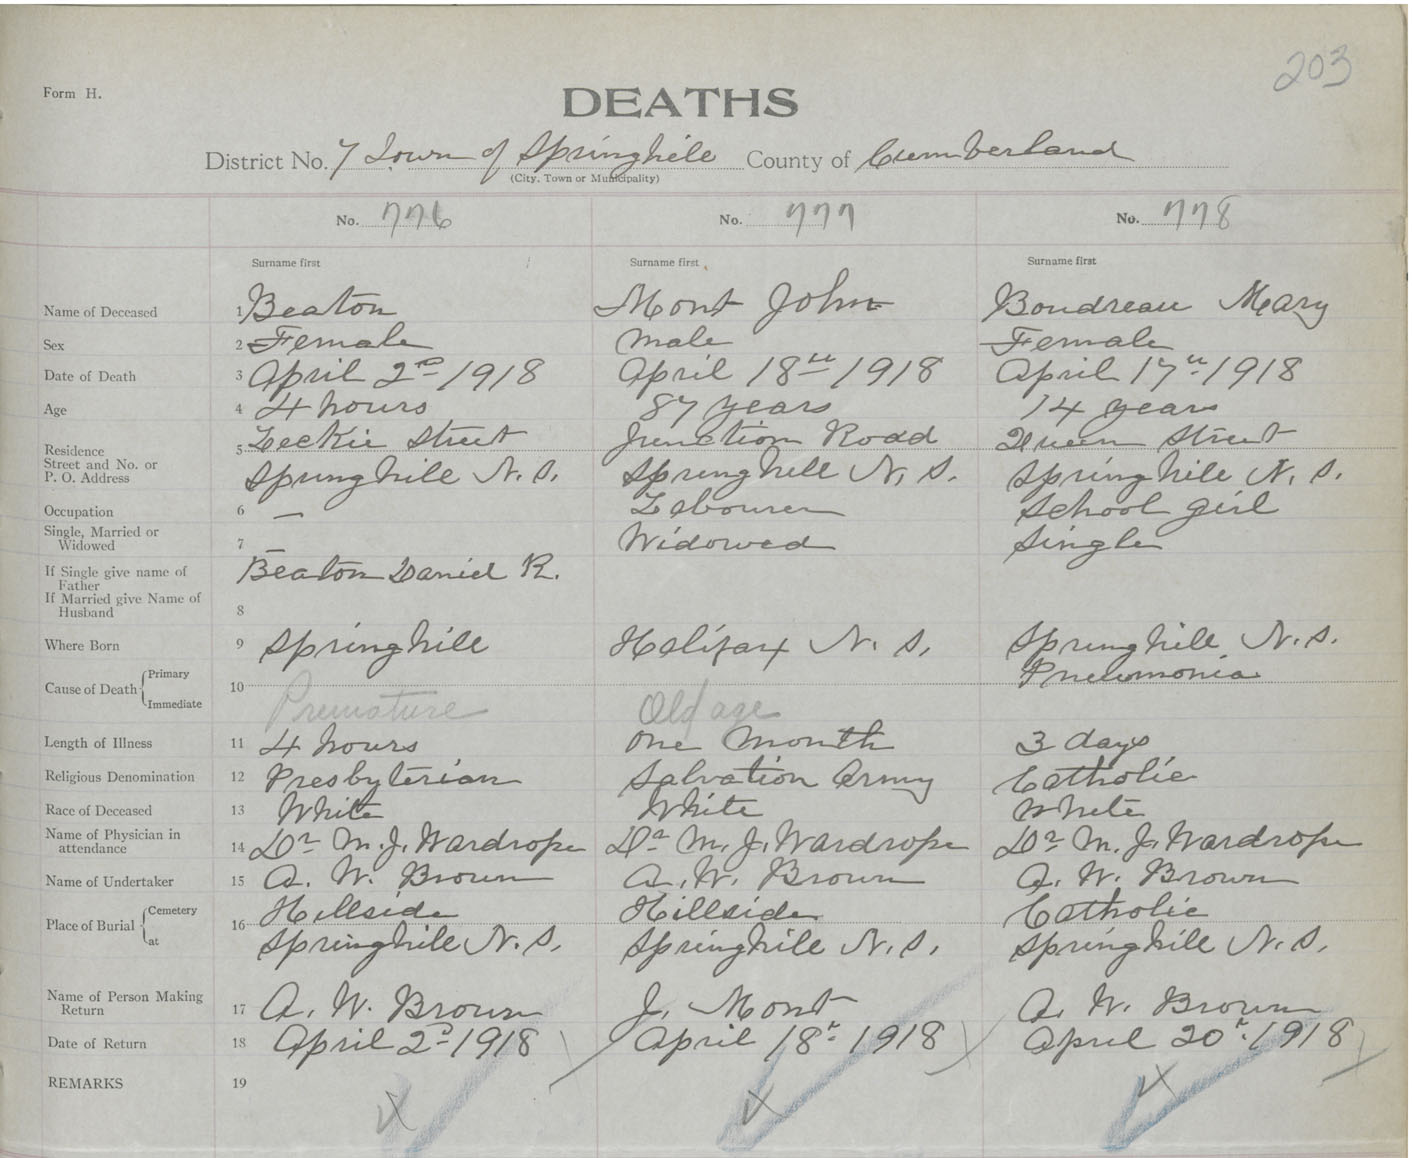 203
Form H.
DEATHS
District No. 7 Town of Springhill County of Cumberland
(City, Town or Municipality)
No. 776 No. 777 No. 778
Surname first Surname first Surname first
Name of Deceased 1 Beaton Mont John Boudreau Mary
Sex 2 Female Male Female
Date of Death 3 April 2nd 1918 April 18th 1918 April 17th 1918
Age 4 4 hours 87 years 14 years
Residence 5 Leckie Street Junction Road Queen Street
Street and No. or
P. O. Address Springhill N. S. Springhill N. S. Springhill N. S.
Occupation 6 — Labourer School girl
Single, Married or
Widowed 7 — Widowed Single
If Single give name of
Father Beaton Daniel R.
If Married give Name of
Husband 8
Where Born 9 Springhill Halifax N. S. Springhill N. S.
Cause of Death Primary 10 Pneumonia
Immediate Premature Old age
Length of Illness 11 4 hours One Month 3 days
Religious Denomination 12 Presbyterian Salvation Army Catholic
Race of Deceased 13 White White White
Name of Physician in
attendance 14 Dr M. J. Wardrope Dr M. J. Wardrope Dr M. J. Wardrope
Name of Undertaker 15 A. W. Brown A. W. Brown A. W. Brown
Place of Burial Cemetery 16 Hillside Hillside Catholic
at Springhill N. S. Springhill N. S. Springhill N. S.
Name of Person Making
Return 17 A. W. Brown J. Mont A. W. Brown
Date of Return 18 April 2d 1918 April 18th 1918 April 20th 1918
REMARKS 19